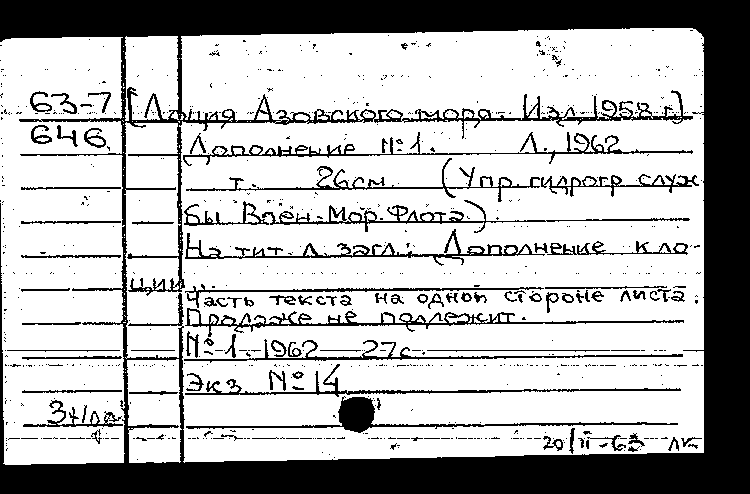 63-7 [Лоция Азовского моря. Изд. 1958 г.]
646
Дополнение №1. Л., 1962
т. 26см (Упр. гидрогр служ
бы Воен-Мор. Флота).
На тит. л. загл.: Дополнение к ло-
ции...
Часть текста на одной стороне листа.
Продаже не подлежит.
№1. 1962 27с.
Экз №14
20/II-63